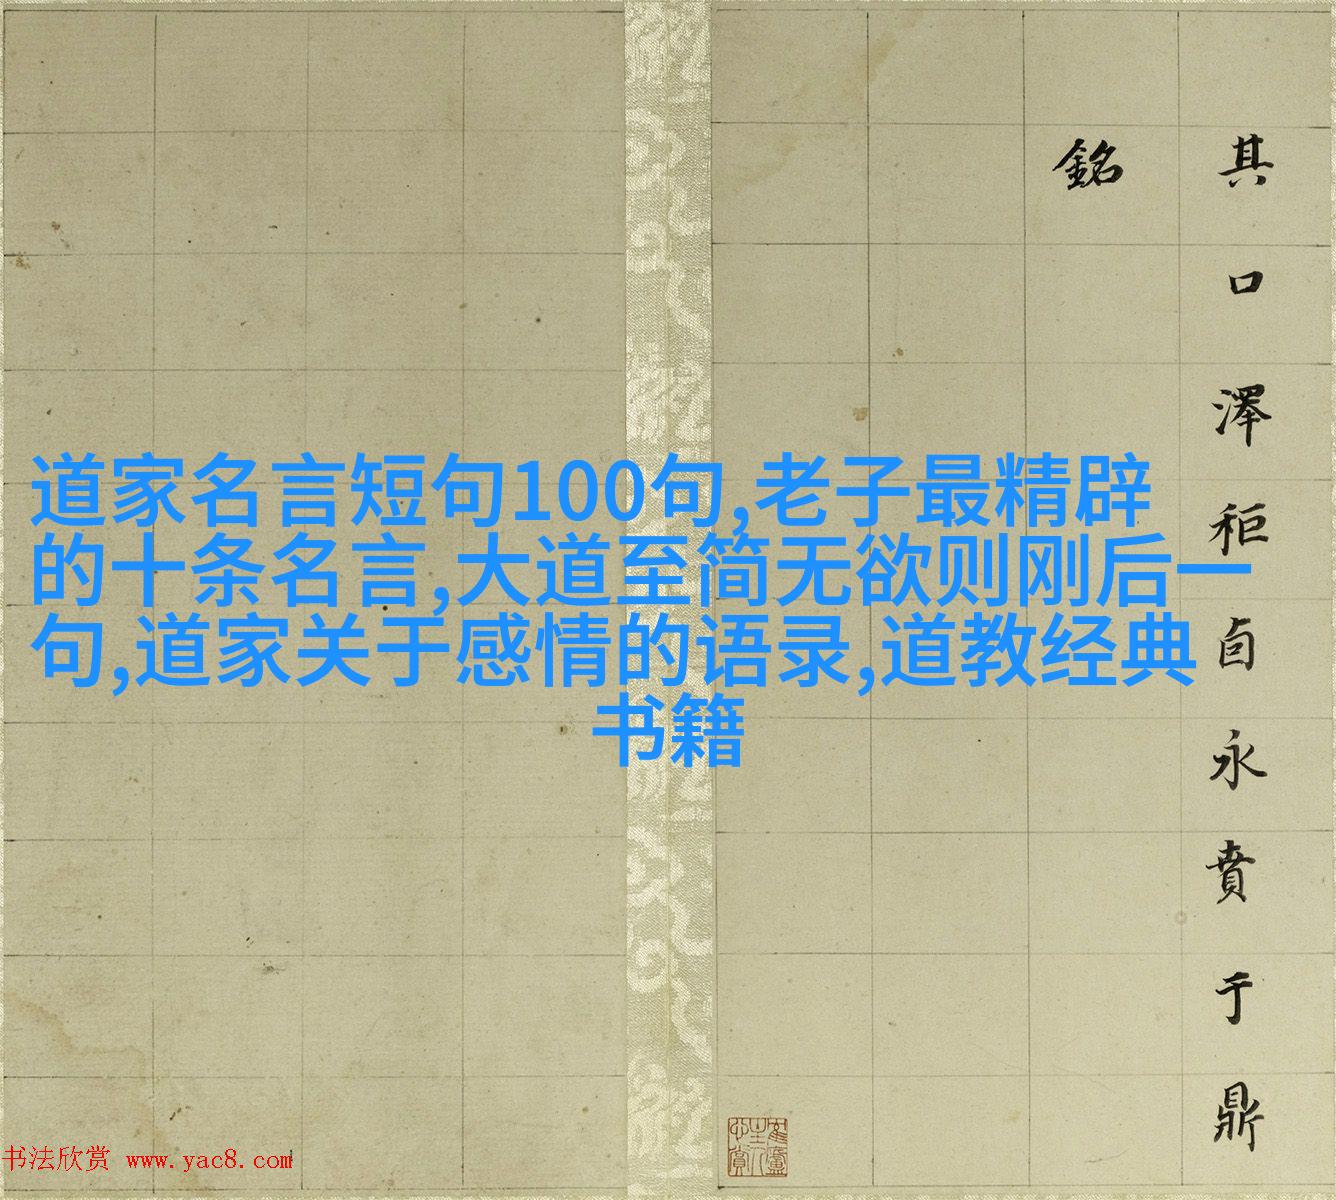 其口澤秬卣永賁于鼎
銘
道家名言短句100句,老子最精辟
的十条名言,大道至简无欲则刚后一
句,道家关于感情的语录,道教经典
书籍
书法欣赏 www.yac8.com